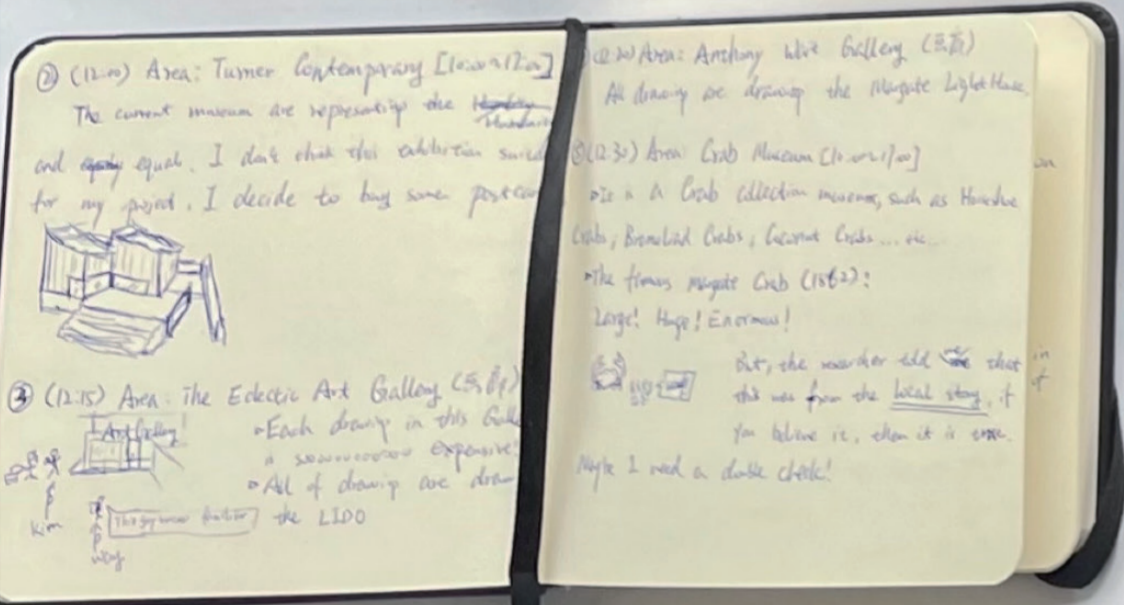 ② (12:00) Area: Turner Contemporary [10:00~17:00]
The current museum are representing the
and equal. I don't think this exhibition
for my project. I decide to buy some
③ (12:15) Area: The Eclectic Art Gallery
Art Gallery!
• Each drawing in this
is soooooooooo expensive!
• All of drawing are
the LIDO
kim
Area: Anthony Gallery
All drawing are drawing the Margate Light House.
(12:30) Area: Crab Museum
• It is a Crab collection museum, such as
Crabs, Bromeliad Crabs, Coconut Crabs ... etc.
• The famous Margate Crab (1862):
Large! Huge! Enormous!
But, the researcher told that
this was from the local story, if
you believe it, then it is true.
Maybe I need a double check!
in